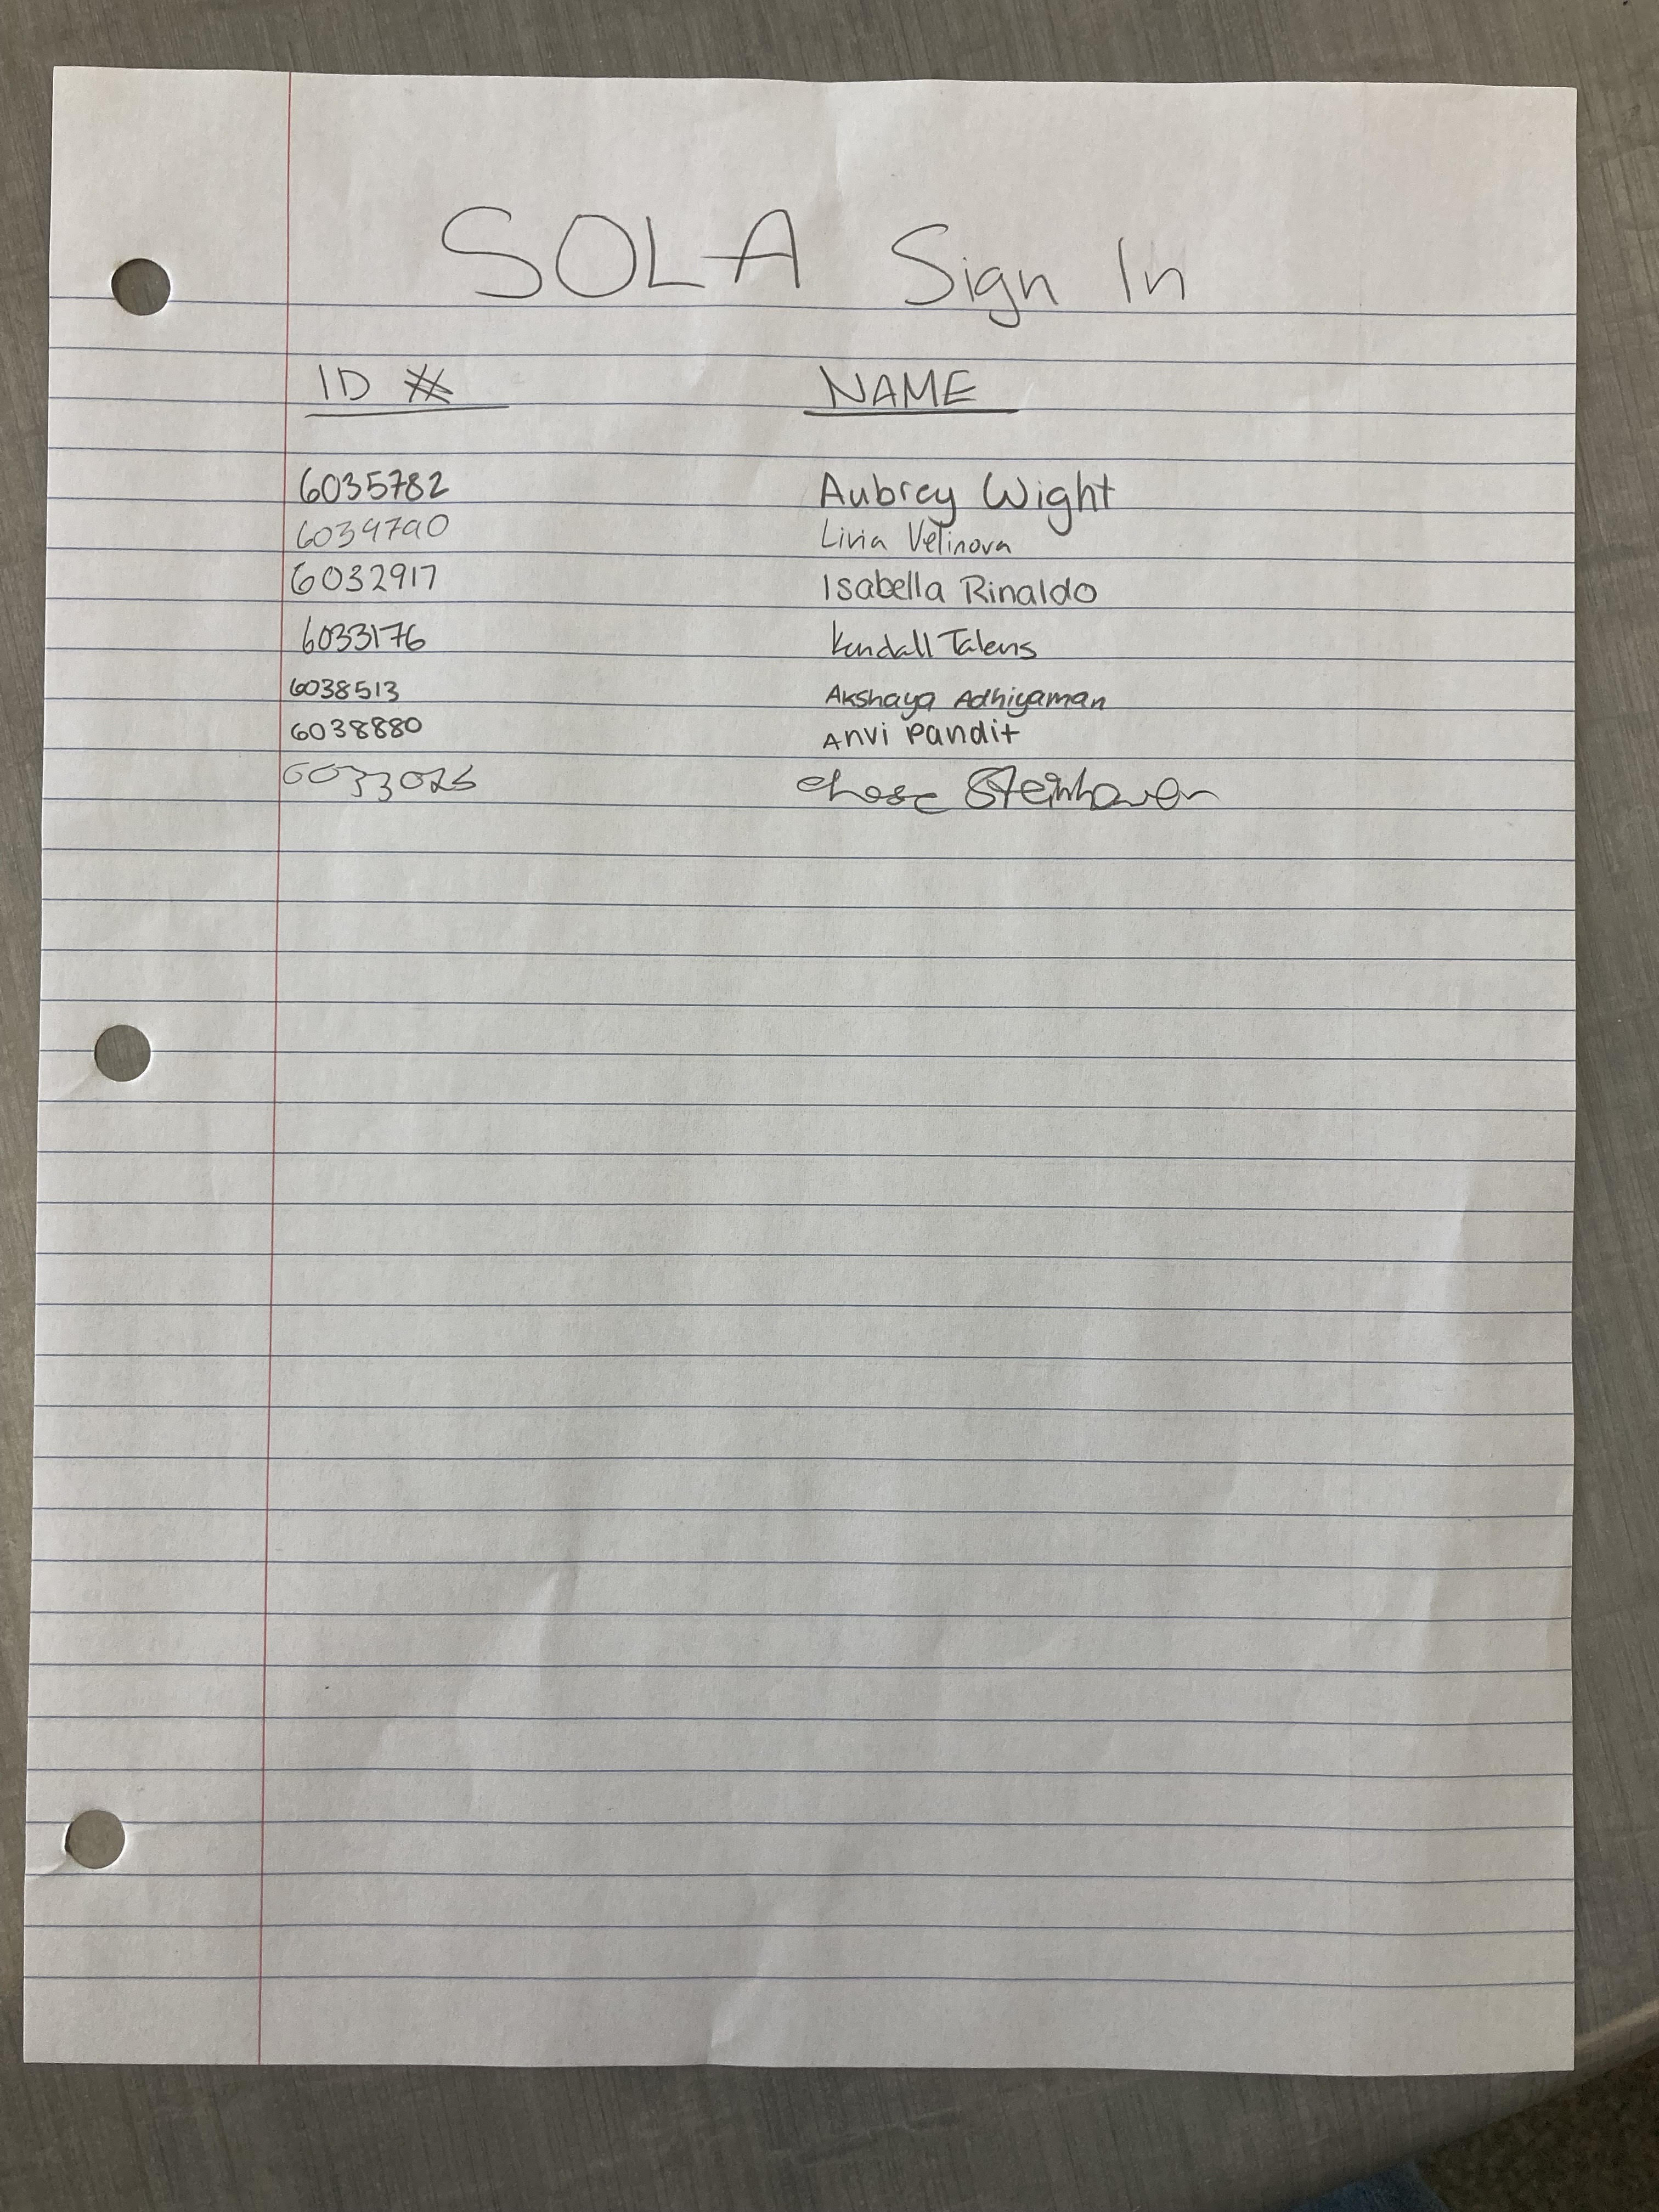 SOLA Sign In
ID # NAME
6035782 Aubrey Wight
6034790 Livia Velinova
6032917 Isabella Rinaldo
6033176 Kendall Talens
6038513 Akshaya Adhiyaman
6038880 Anvi Pandit
Chase